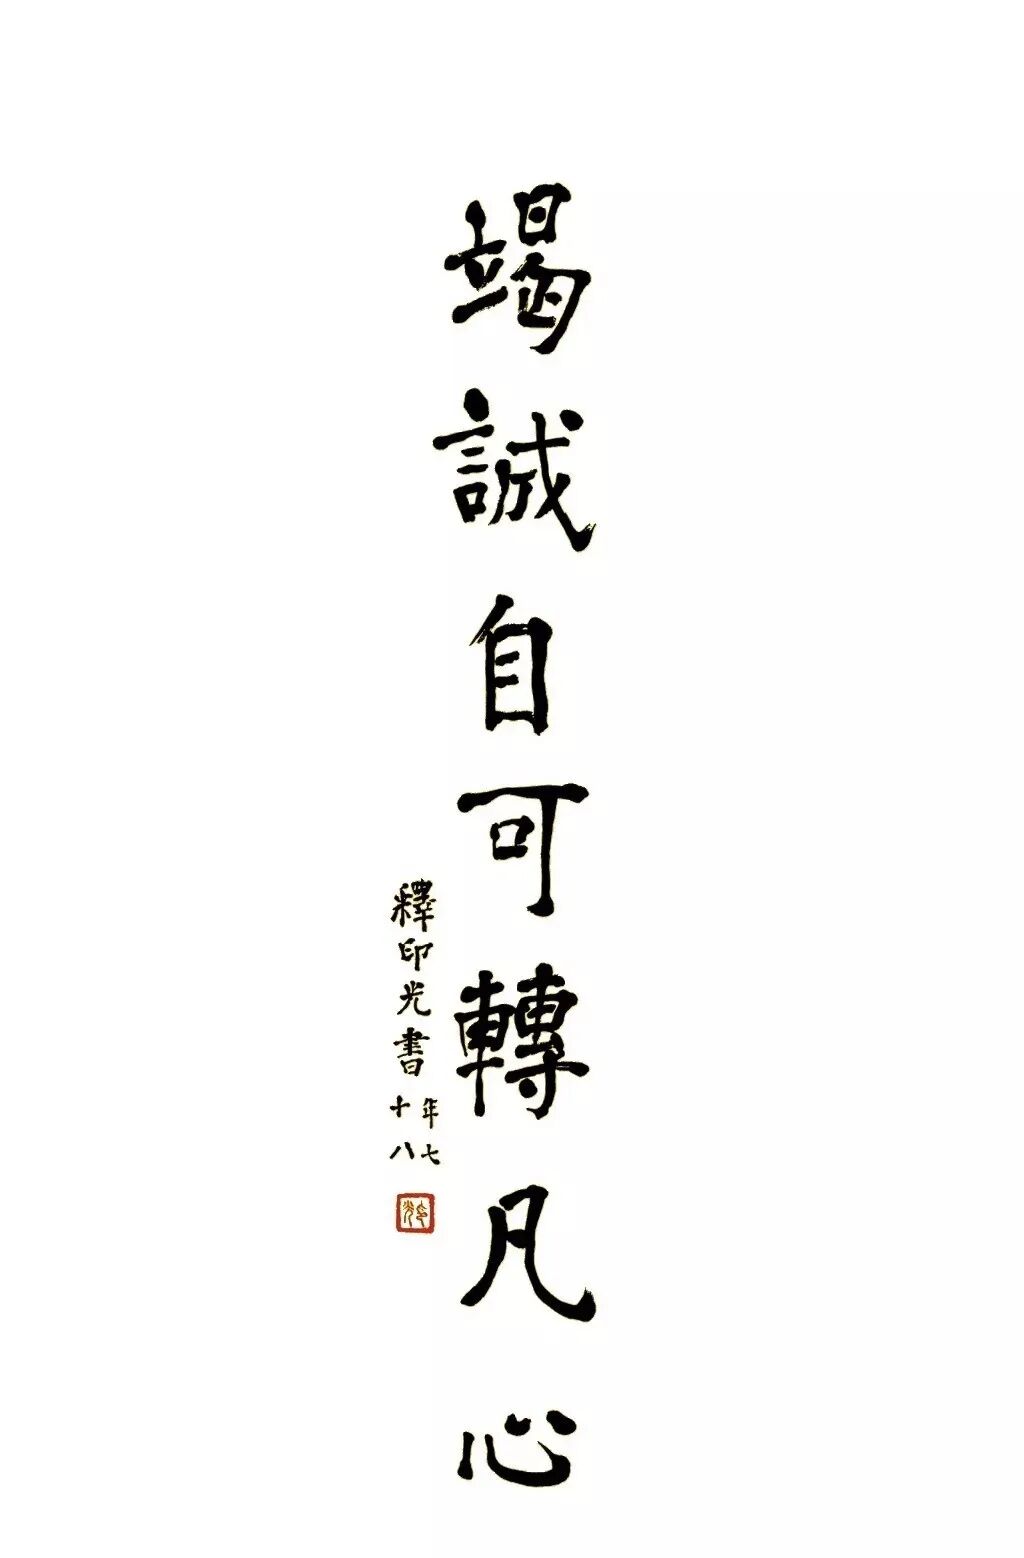 竭誠自可轉凡心
釋印光書
年七
十八
印光